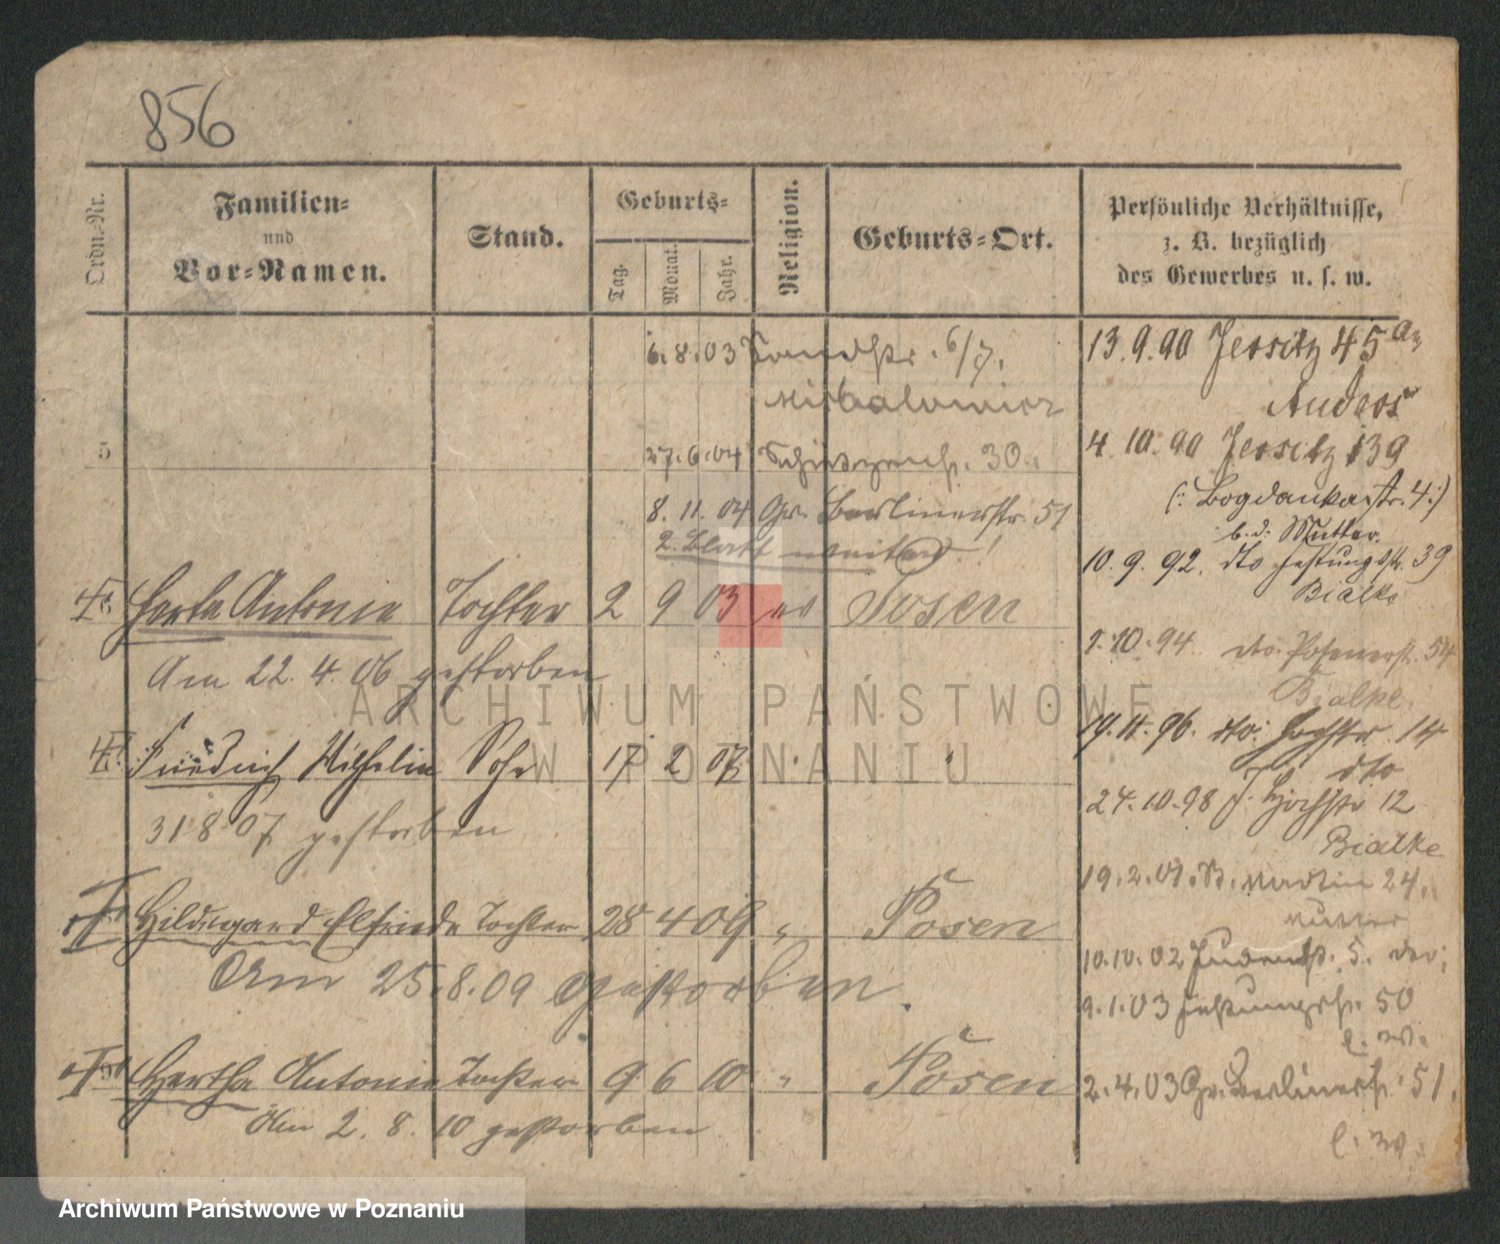 856
Ordn.-Nr.
Familien-
und
Vor-Namen.
Stand.
Geburts-
Tag.
Monat.
Jahr.
Religion.
Geburts-Ort.
Persönliche Verhältnisse,
z. B. bezüglich
des Gewerbes u. s. w.
6.8.03 6/7.
5
27.6.04 Schützenstr. 30.
8. 11. 04 Gr. Berlinerstr. 51
2. Blatt weiter!
Herta Antonie Tochter 2 9 03 Posen
Am 22. 4. 06 gestorben
Friedrich Wilhelm Sohn 17 2 07
31 8 07 gestorben
Hildegard Elfriede Tochter 28 4 09 " Posen
Am 25. 8. 09 gestorben.
Hertha Antonie Tochter 9 6 10 " Posen
Am 2. 8. 10 gestorben
13. 9. 90 Jersitz 45
4. 10. 90 Jersitz 139
(: Bogdankastr. 4 :)
b. d. Mutter.
10. 9. 92. dto Festungsstr. 39
Bialke
1. 10. 94. dto. Posenerstr. 54
Bialke.
19. 11. 96. dto. Hochstr. 14
dto
24. 10. 98 J. Hochstr 12
Bialke
19. 2. 01. St. Martin 24.
Mutter
10. 10. 02 Judenstr. 5. dto.
9. 1. 03 Festungsstr. 50
e. W.
2. 4. 03 Gr. Berlinerstr. 51.
e. W.
ARCHIWUM PAŃSTWOWE
W POZNANIU
Archiwum Państwowe w Poznaniu